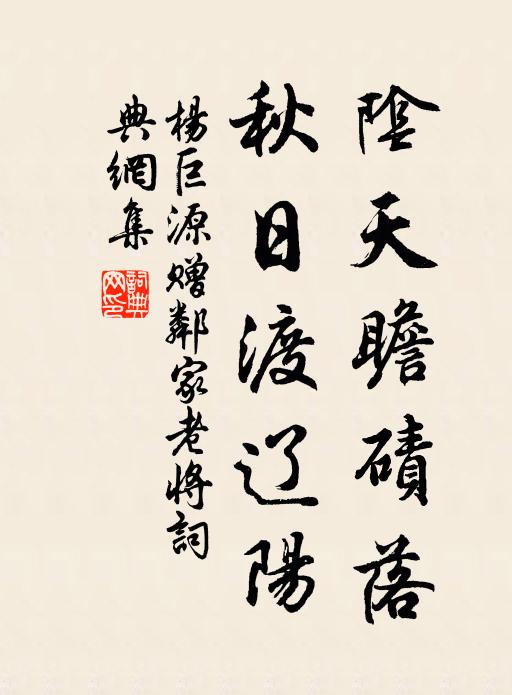 陰天瞻磧落
秋日渡辽陽
楊巨源赠鄰家老将詞
典網集
詞典网印